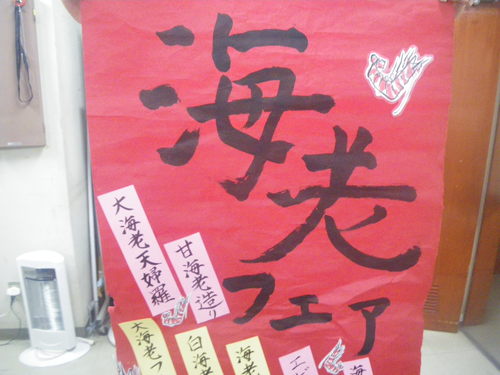 海老
フェア
大海老天婦羅
甘海老造り
大海老フ
白海老
海老
エビ
海